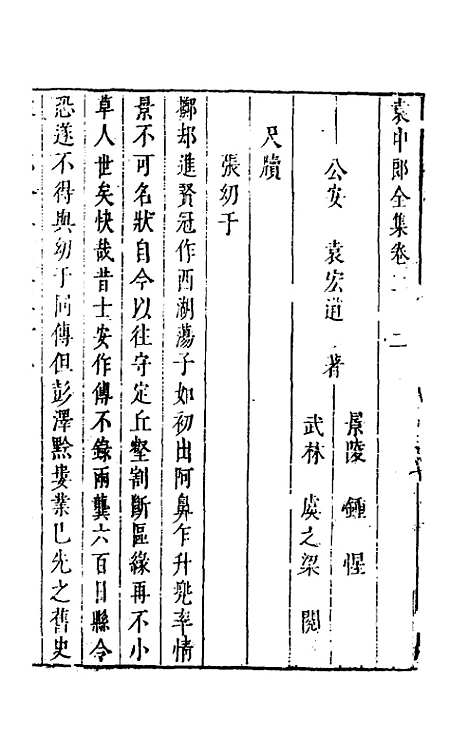 袁中郎全集卷二
公安 袁宏道 著
景陵 鍾惺
武林 虞之梁 閱
尺牘
張幼于
擲却進賢冠作西湖蕩子如初出阿鼻乍升兜率情
景不可名狀自今以往守定丘壑割斷區緣再不小
草人世矣快哉昔士安作傳不錄兩龔六百日縣令
恐遂不得與幼于同傳但彭澤黔婁業已先之舊史